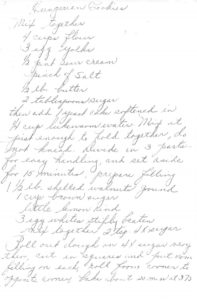 Hungarian Cookies
Mix together
4 cups flour
3 egg yolks
½ pint sour cream
1 pinch of salt
½ lb. butter
2 tablespoons sugar
then add 1 yeast cake softened in
¼ cup lukewarm water Mix at
just enough to hold together, do
not knead. divide in 3 parts
for easy handling, and set aside
for 10 minutes. prepare filling
1½ lb. shelled walnuts ground
1 cup brown sugar
little lemon rind
3 egg whites stiffly beaten
Mix together
Roll out dough in sugar very
thin, cut in squares and put
filling on each, roll from corner to
corner. bake 375